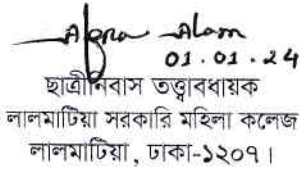 Afroza Alam
01.01.24
ছাত্রীনিবাস তত্ত্বাবধায়ক
লালমাটিয়া সরকারি মহিলা কলেজ
লালমাটিয়া, ঢাকা-১২০৭।